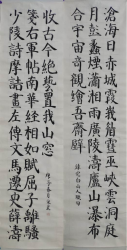 滄海日赤城霞峨眉雪巫峽雲洞庭
月彭蠡煙瀟湘雨廣陵濤廬山瀑布
合宇宙奇觀繪吾齋壁
少陵詩摩詰畫左傳文馬遷史薛濤
箋右軍帖南華經相如賦屈子離騷
收古今絶藝置我山窗